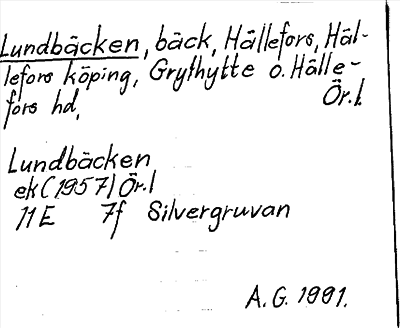 Lundbäcken, bäck, Hällefors, Häl-
lefors köping, Grythytte o. Hälle-
fors hd, Ör.l.
Lundbäcken
ek (1957) Ör.l
11E 7f Silvergruvan
A.G. 1991.